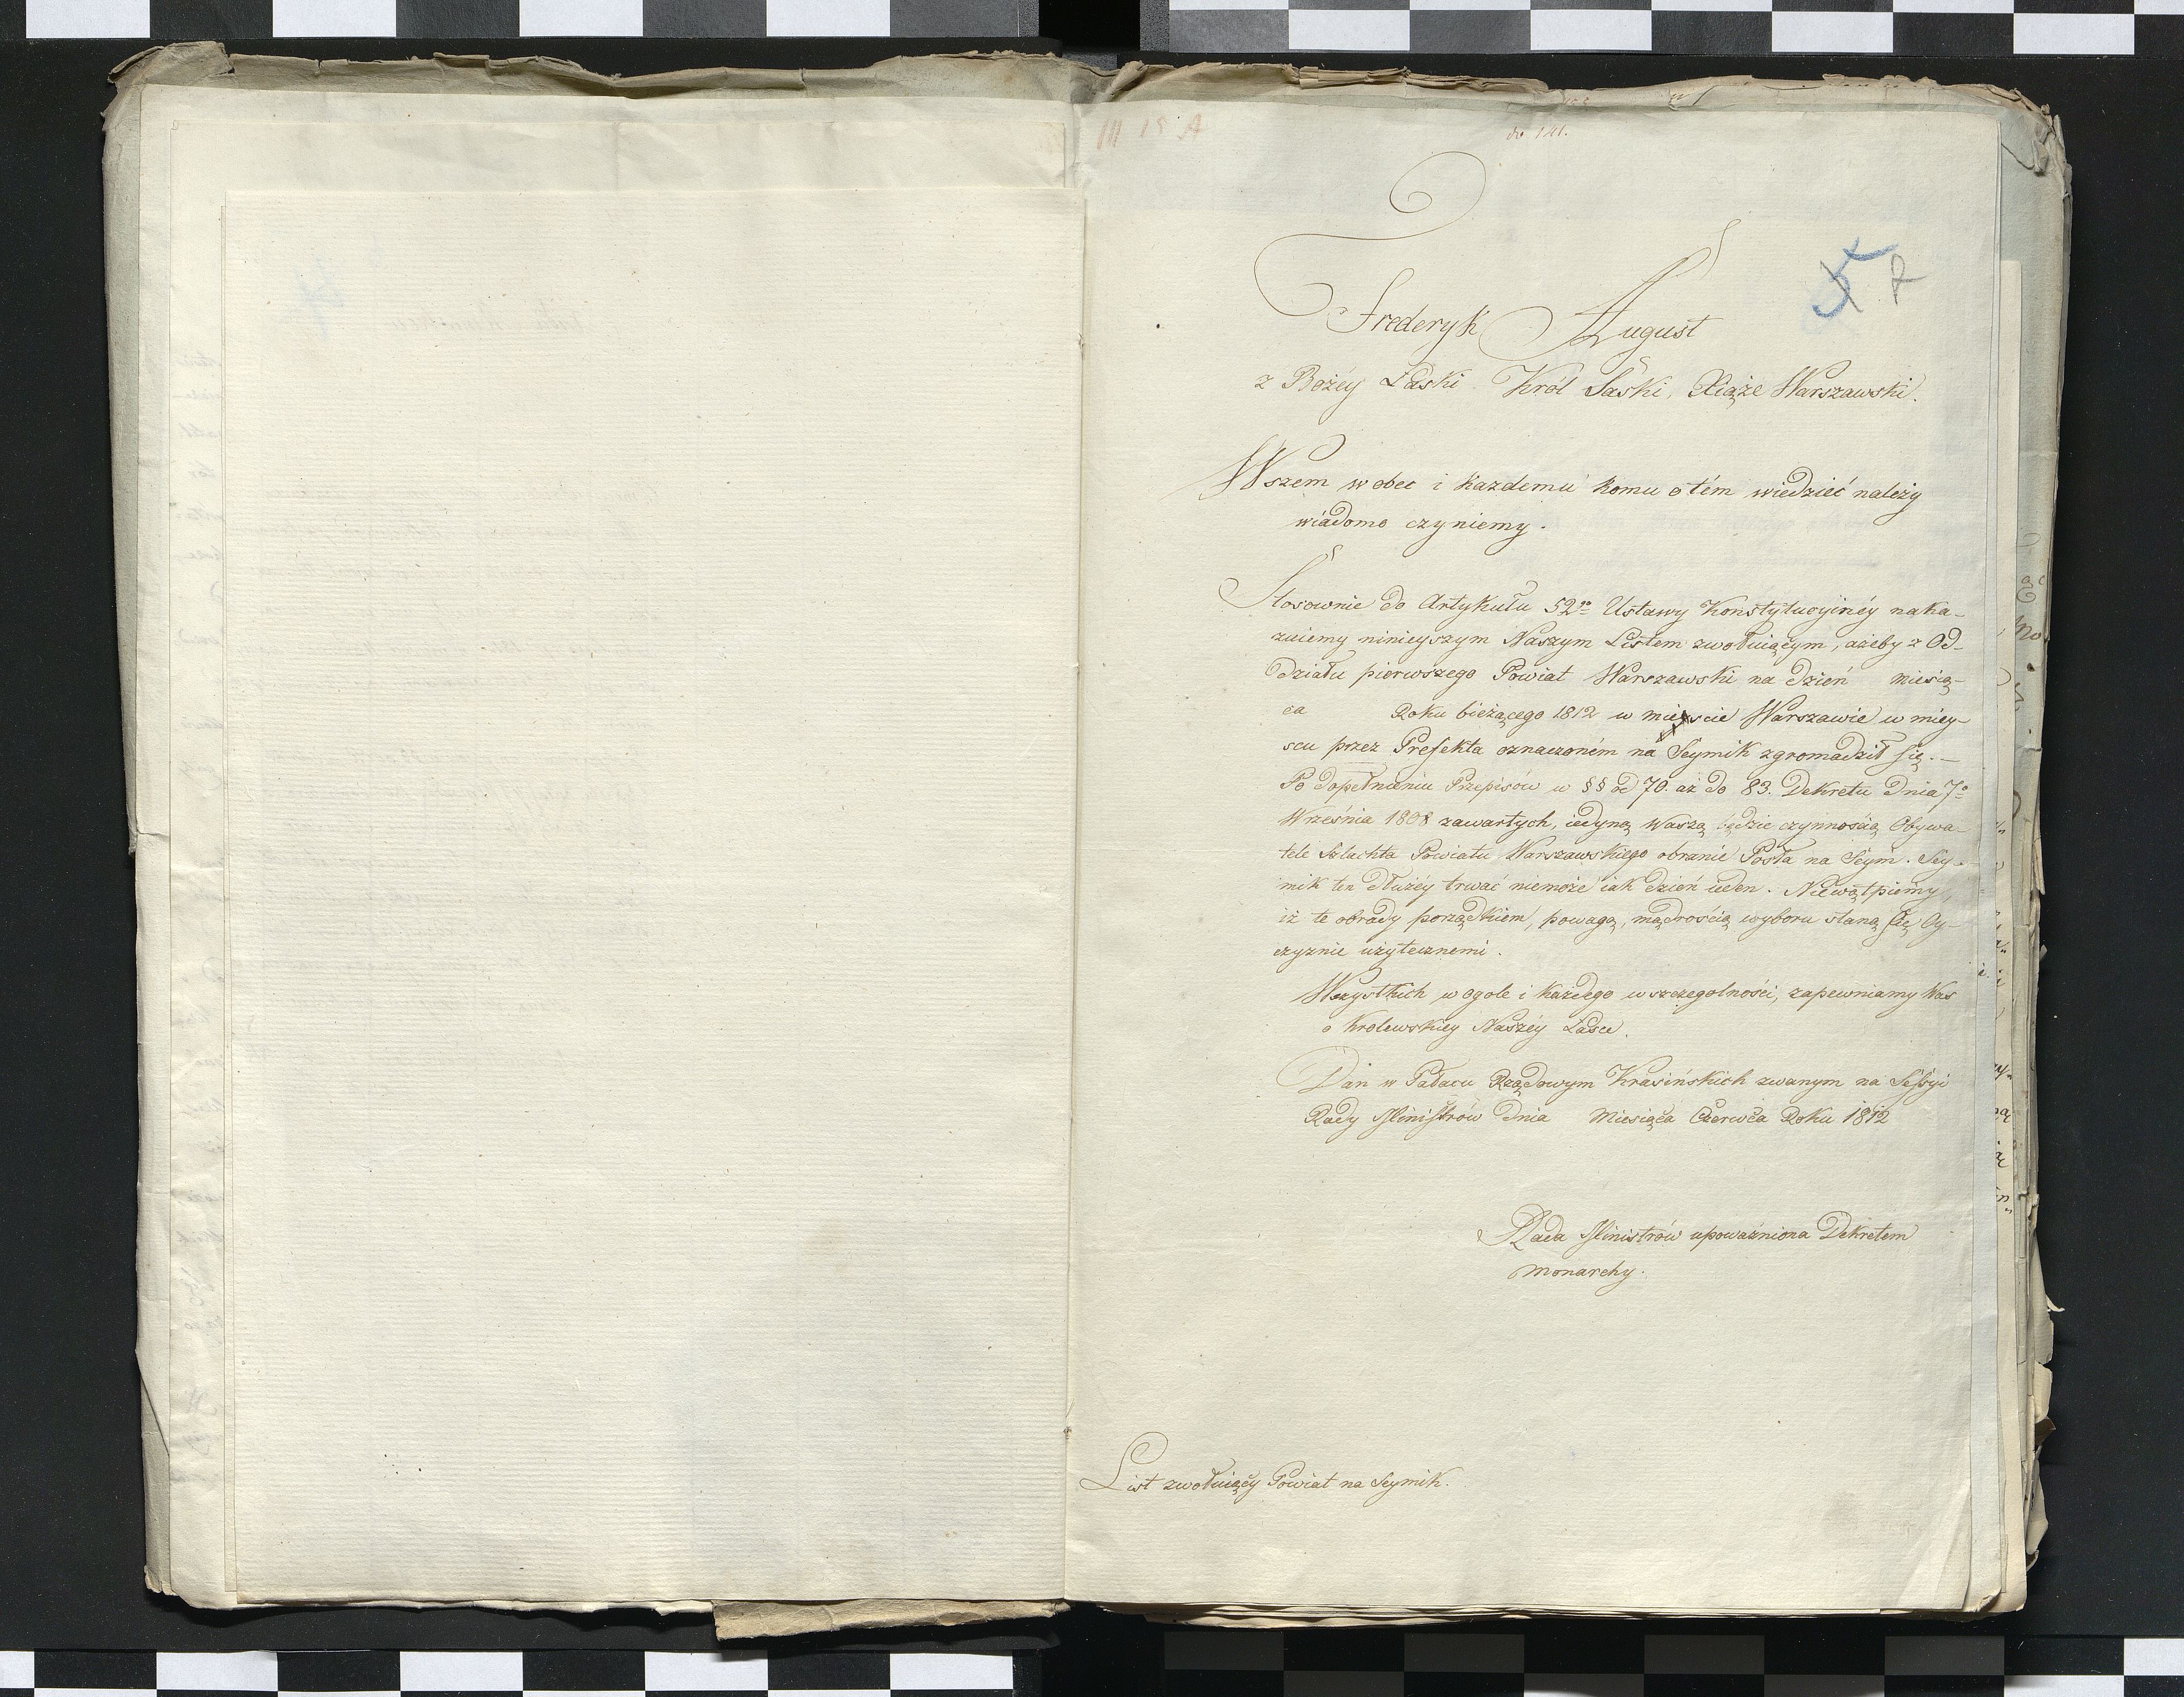 III 15 A
do 141.
5 R
Frederyk August
z Bożéy Łaski Król Saski, Xiąże Warszawski.
Wszem w obec i każdemu komu o tém wiedzieć należy
wiadomo czyniemy.
Stosownie do Artykułu 52go Ustawy Konstytucyinéy naka-
zuiemy ninieyszym Naszym Listem zwołuiącym, ażeby z Od-
działu pierwszego Powiat Warszawski na dzień miesią-
ca Roku bieżącego 1812 w mieście Warszawie w miey-
scu przez Prefekta oznaczoném na Seymik zgromadził się.—
Po dopełnieniu Przepisów w §§ od 70. aż do 83. Dekretu Dnia 7o
Września 1808 zawartych, iedyną waszą będzie czynnością Obywa-
tele Szlachta Powiatu Warszawskiego obranie Posła na Seym. Sey-
mik ten dłużéy trwać niemoże iak dzień ieden. Niewątpiemy,
iż te obrady porządkiem, powagą, mądrością wyboru staną się Oy-
czyznie użytecznemi.
Wszystkich w ogole i każdego w szczegolności, zapewniamy Was
o Krolewskiey Naszéy Łasce.
Dan w Pałacu Rządowym Krasińskich zwanym na Sessyi
Rady Ministrów Dnia Miesiąca Czerwca Roku 1812
Rada Ministrów upoważniona Dekretem
Monarchy.
List zwołuiący Powiat na Seymik.